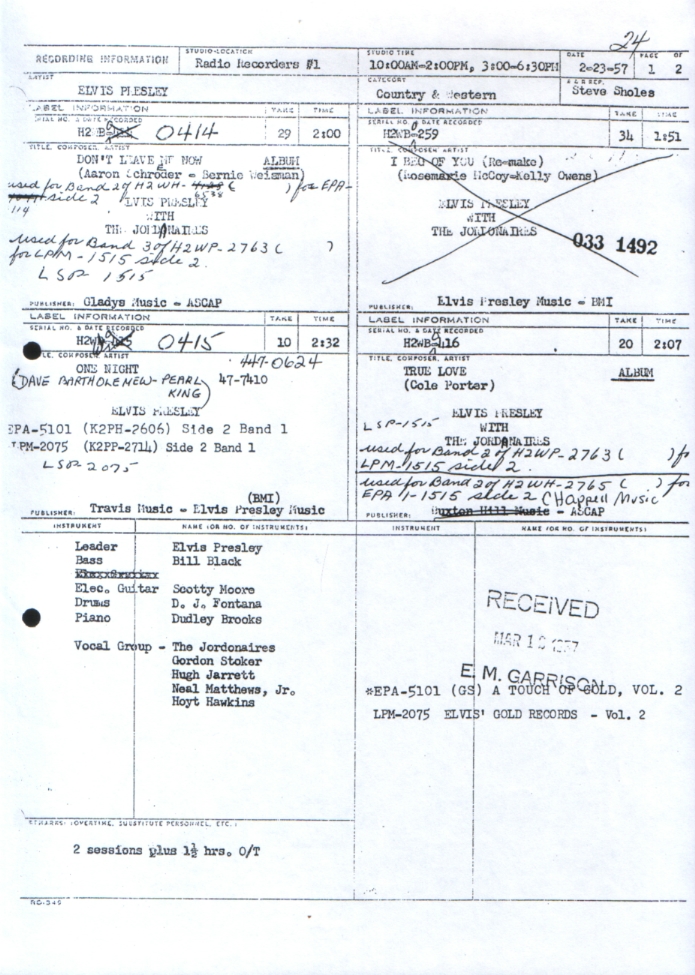 24
RECORDING INFORMATION
STUDIO-LOCATION
Radio Recorders #1
STUDIO TIME
10:00AM-2:00PM, 3:00-6:30PM
DATE
2-23-57
PAGE OF
1 2
ARTIST
ELVIS PRESLEY
CATEGORY
Country & Western
A & R REP.
Steve Sholes
LABEL INFORMATION TAKE TIME
SERIAL NO. & DATE RECORDED
H2WB 0414 29 2:00
TITLE, COMPOSER, ARTIST
DON'T LEAVE ME NOW ALBUM
(Aaron Schroder - Bernie Weisman)
used for Band 2 of H2WH- ( ) for EPA-
side 2
114
ELVIS PRESLEY
WITH
THE JORDANAIRES
used for Band 3 of H2WP-2763 ( )
for LPM-1515 side 2.
LSP 1515
PUBLISHER: Gladys Music - ASCAP
LABEL INFORMATION TAKE TIME
SERIAL NO. & DATE RECORDED
H2WB-259 34 1:51
TITLE, COMPOSER, ARTIST
I BEG OF YOU (Re-make)
(Rosemarie McCoy-Kelly Owens)
ELVIS PRESLEY
WITH
THE JORDONAIRES
033 1492
PUBLISHER: Elvis Presley Music - BMI
LABEL INFORMATION TAKE TIME
SERIAL NO. & DATE RECORDED
H2WB 0415 10 2:32
TITLE, COMPOSER, ARTIST
ONE NIGHT 447-0624
(DAVE BARTHOLENEW- PEARL KING) 47-7410
ELVIS PRESLEY
EPA-5101 (K2PH-2606) Side 2 Band 1
LPM-2075 (K2PP-2714) Side 2 Band 1
LSP 2075
(BMI)
PUBLISHER: Travis Music - Elvis Presley Music
LABEL INFORMATION TAKE TIME
SERIAL NO. & DATE RECORDED
H2WB-0416 20 2:07
TITLE, COMPOSER, ARTIST
TRUE LOVE ALBUM
(Cole Porter)
ELVIS PRESLEY
LSP-1515 WITH
THE JORDANAIRES
used for Band 2 of H2WP-2763 ( ) for
LPM-1515 side 2.
used for Band 2 of H2WH-2765 ( ) for
EPA 1-1515 side 2 CHappell Music
PUBLISHER: Buxton Hill Music - ASCAP
INSTRUMENT NAME (OR NO. OF INSTRUMENTS) INSTRUMENT NAME (OR NO. OF INSTRUMENTS)
Leader Elvis Presley
Bass Bill Black
Elec. Guitar Scotty Moore
Drums D. J. Fontana
Piano Dudley Brooks
Vocal Group - The Jordonaires
Gordon Stoker
Hugh Jarrett
Neal Matthews, Jr.
Hoyt Hawkins
RECEIVED
MAR 1 1957
E. M. GARRISON
*EPA-5101 (GS) A TOUCH OF GOLD, VOL. 2
LPM-2075 ELVIS' GOLD RECORDS - Vol. 2
REMARKS: (OVERTIME, SUBSTITUTE PERSONNEL, ETC.)
2 sessions plus 1½ hrs. O/T